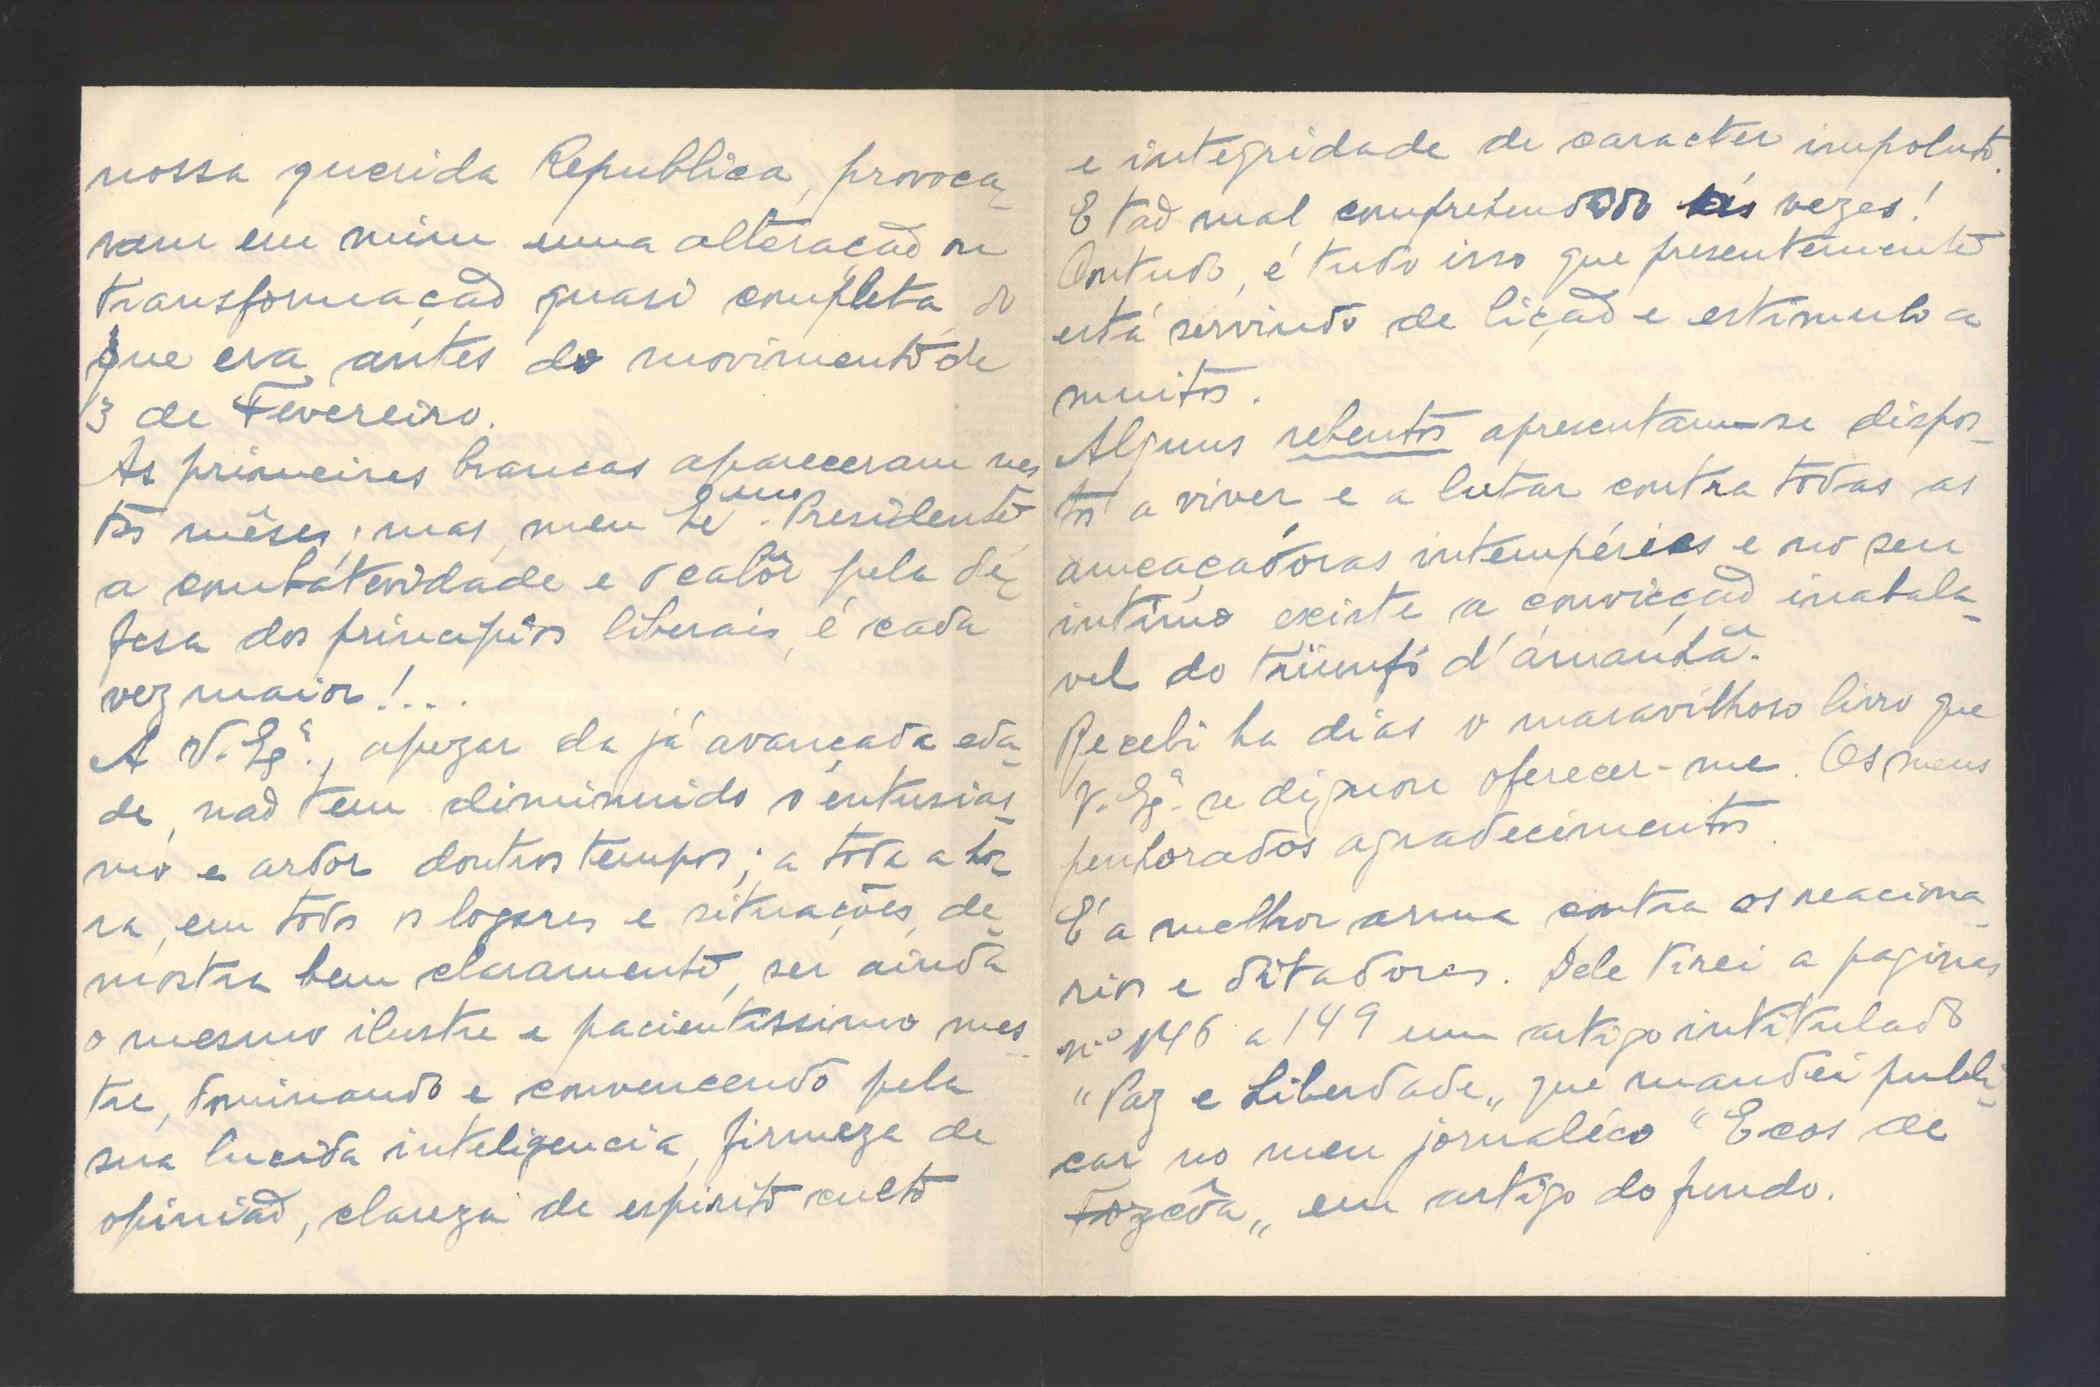 nossa querida Republica, provoca-
ram em mim uma alteração ou
transformação quasi completa do
que era antes do movimento de
3 de Fevereiro.
As primeiras brancas apareceram nes-
tes mêses; mas, meu Exmo. Presidente
a combátevidade e o calôr pela dé-
fesa dos principios liberais, é cada
vez maior!...
A V. Exª., apezar da já avançada eda-
de, não tem diminuido o entusias-
mo e ardor doutros tempos; a toda a ho-
ra, em todos os logares e situações, de-
mostra bem claramente, ser ainda
o mesmo ilustre e pacientissimo mes-
tre, dominando e convencendo pela
sua lucida inteligencia, firmeza de
opinião, clareza de espirito culto
e integridade de caracter impoluto.
E tão mal compreendido ás vezes!
Contudo, é tudo isso que presentemente
está servindo de lição e estimulo a
muitos.
Alguns rebentos apresentam-se dispos-
tos a viver e a lutar contra todas as
ameaçadoras intempéries e no seu
intimo existe a convicção inabala-
vel do triunfo d'ámanhã.
Recebi ha dias o maravilhoso livro que
V. Exª. se dignou oferecer-me. Os meus
penhorados agradecimentos.
E' a melhor arma contra os reaciona-
rios e ditadores. Dele tirei a paginas
nº 146 a 149 um artigo intitulado
"Paz e Liberdade„ que mandei publi-
car no meu jornaléco "Ecos de
Fozcôa„ em artigo do fundo.